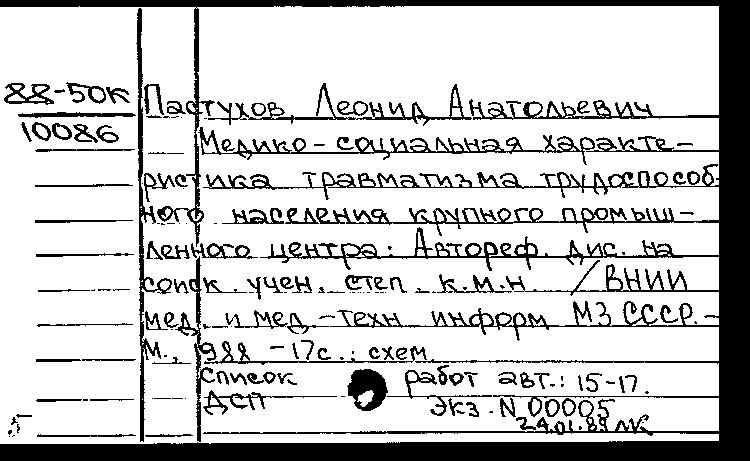 88-50К
10086
Пастухов, Леонид Анатольевич
Медико-социальная характе-
ристика травматизма трудоспособ-
ного населения крупного промыш-
ленного центра: Автореф. дис. на
соиск. учен. степ. к.м.н. / ВНИИ
мед. и мед.-техн информ МЗ СССР.-
М., 988. -17с.: схем.
Список работ авт.: 15-17.
ДСП Экз. N 00005
24.01.89
5